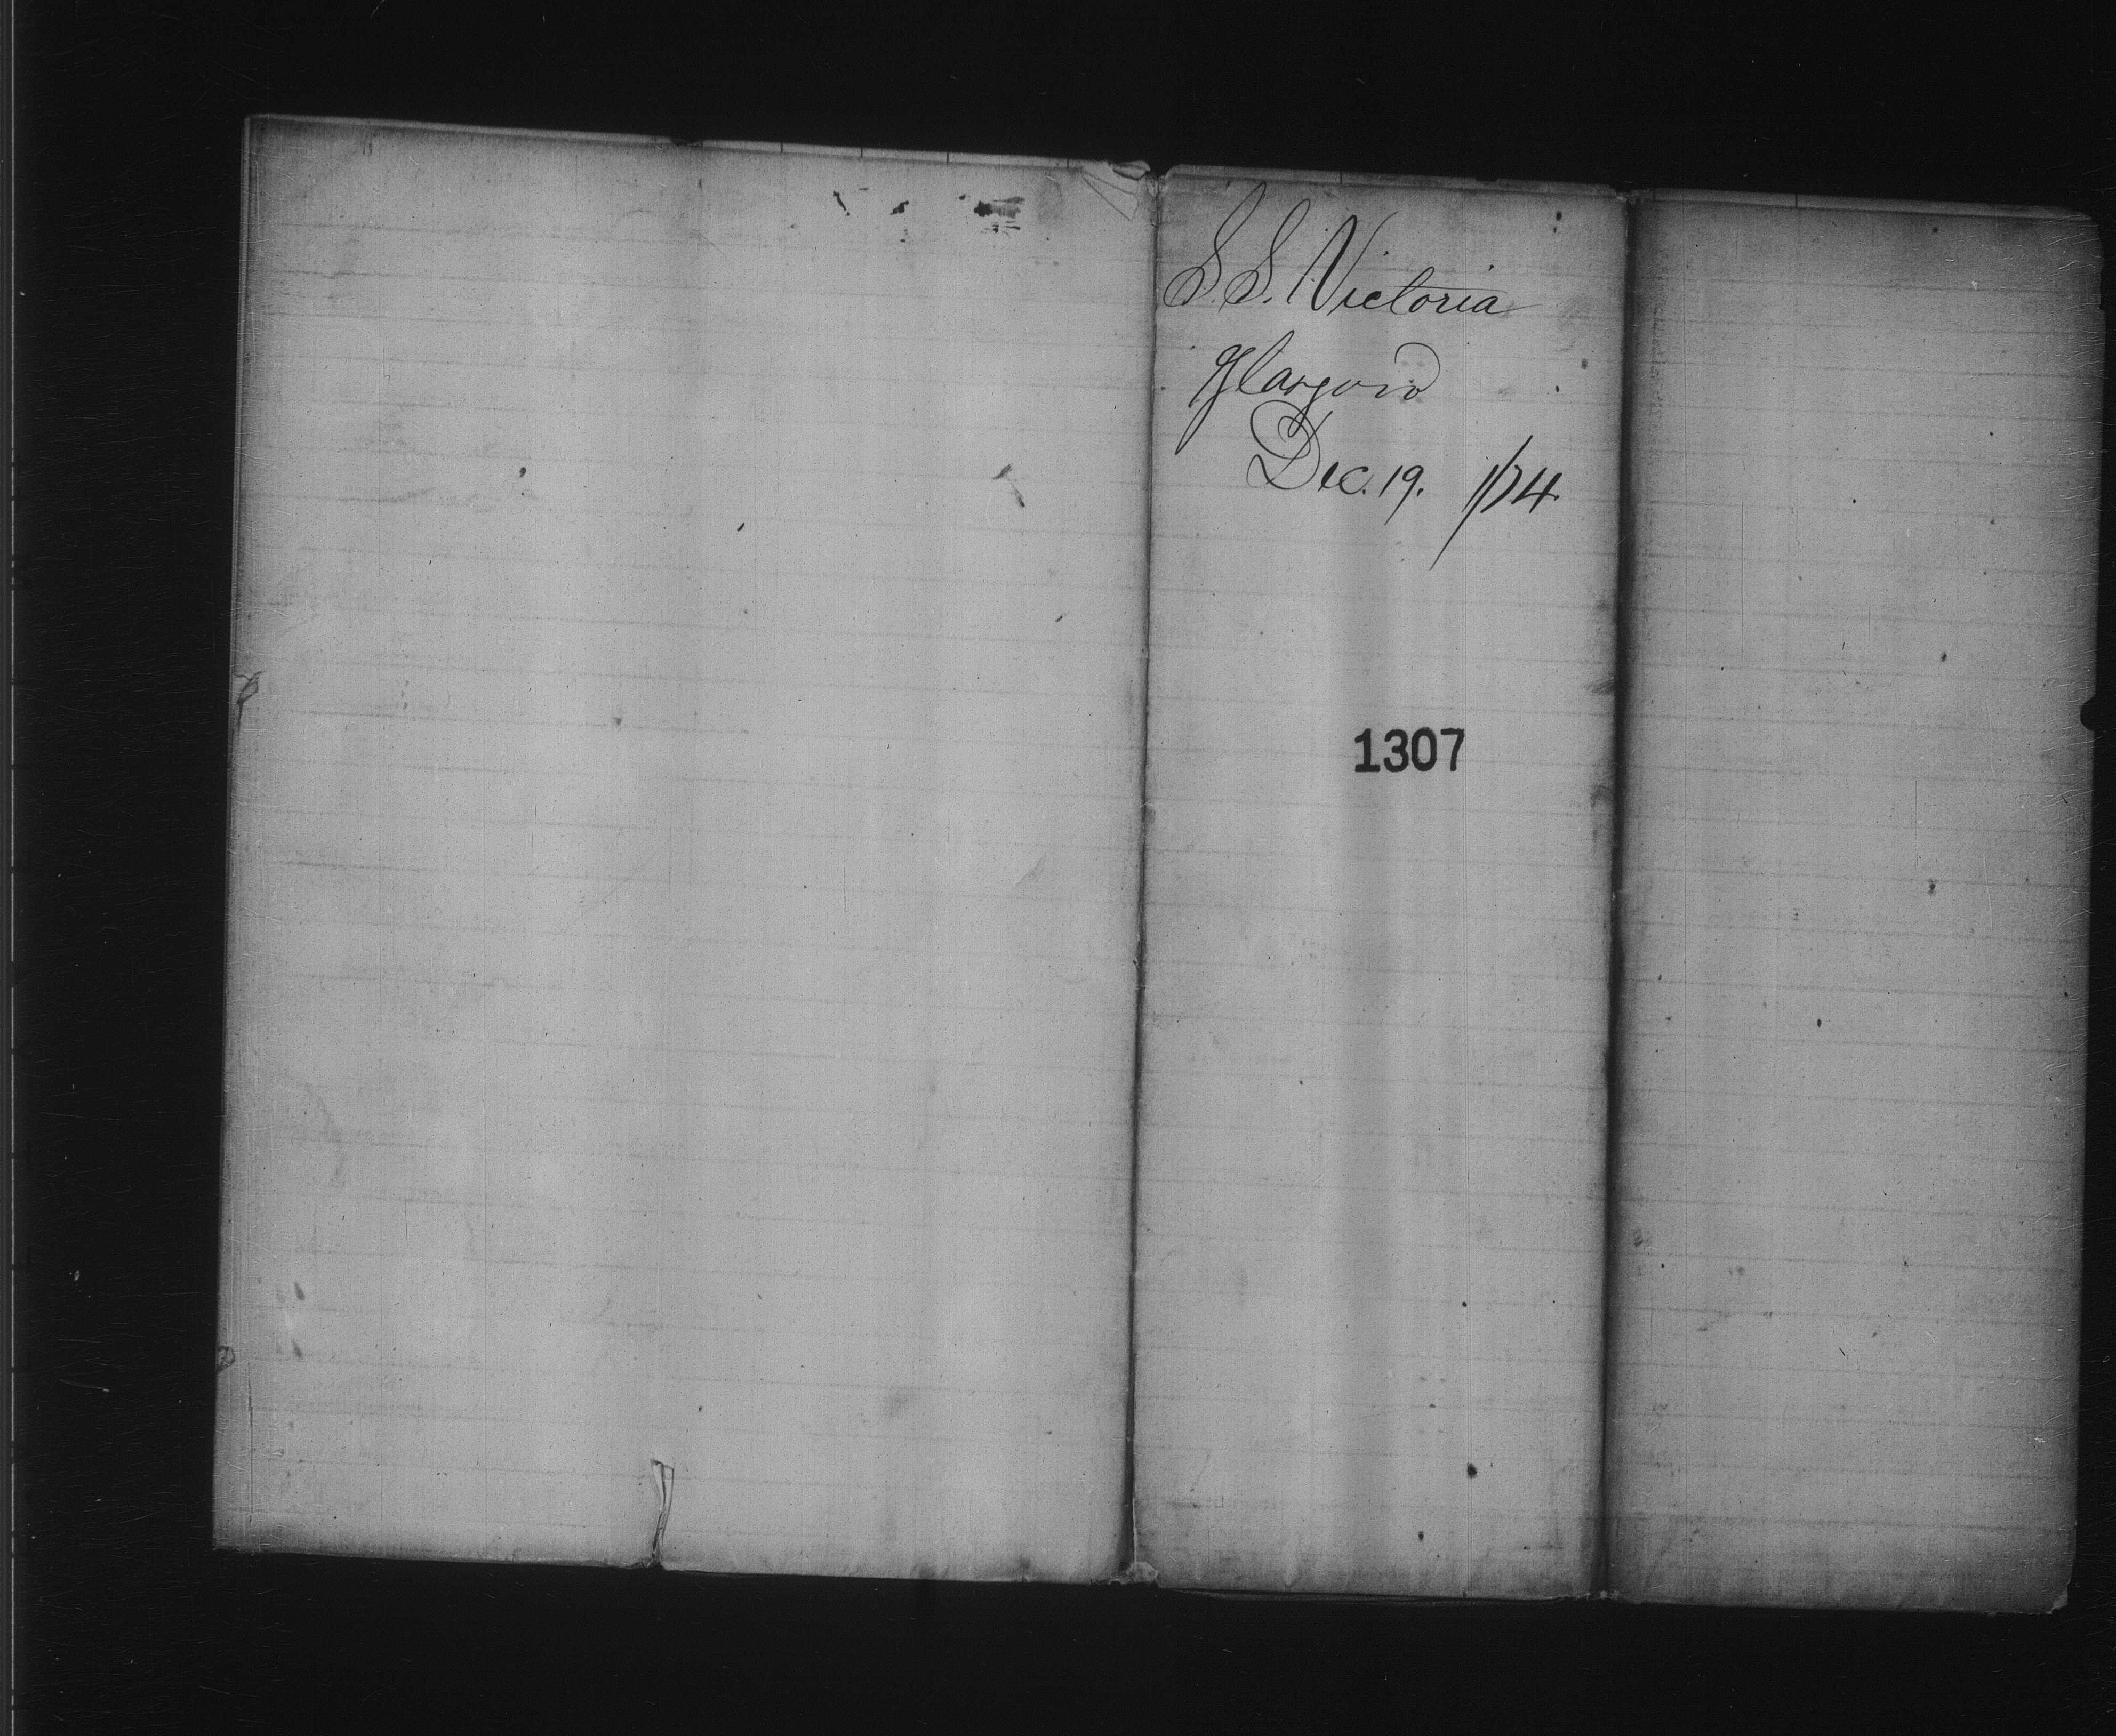 S.S. Victoria
Glasgow
Dec. 19. 1/74.
1307